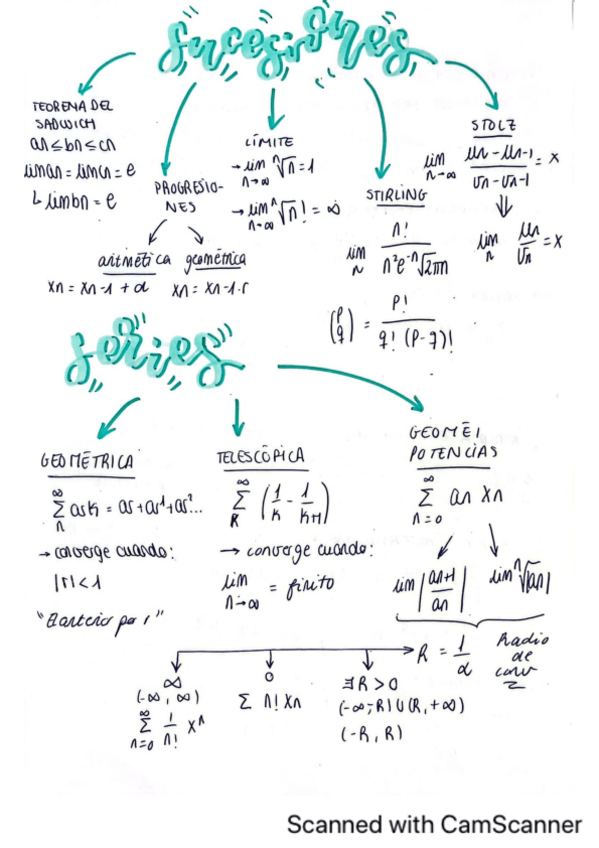 sucesiones
TEOREMA DEL
SADWICH
an ≤ bn ≤ cn
liman = limcn = e
↳ limbn = e
PROGRESIO-
NES
aritmética geométrica
Xn = Xn-1 + d Xn = Xn-1.r
LÍMITE
→ lim ⁿ√n = 1
n→∞
→ lim ⁿ√n! = ∞
n→∞
STIRLING
lim n! / nⁿe⁻ⁿ√2πn
n
(p q) = p! / q! (p-q)!
STOLZ
lim un - un-1 / vn - vn-1 = x
n→∞
⇓
lim un / vn = x
n
series
GEOMÉTRICA
∞
Σ ark = ar + ar¹ + ar²...
n
→ converge cuando:
|r| < 1
TELESCÓPICA
∞
Σ (1/k - 1/k+1)
k
→ converge cuando:
lim = finito
n→∞
GEOMÉ|
POTENCIAS
∞
Σ an xn
n=0
lim |an+1 / an| lim ⁿ√|an|
R = 1/α
Radio
de
conv
∞
(-∞, ∞)
∞
Σ 1/n! xⁿ
n=0
0
Σ n! xn
∃R > 0
(-∞,-R)∪(R,+∞)
(-R, R)
Scanned with CamScanner